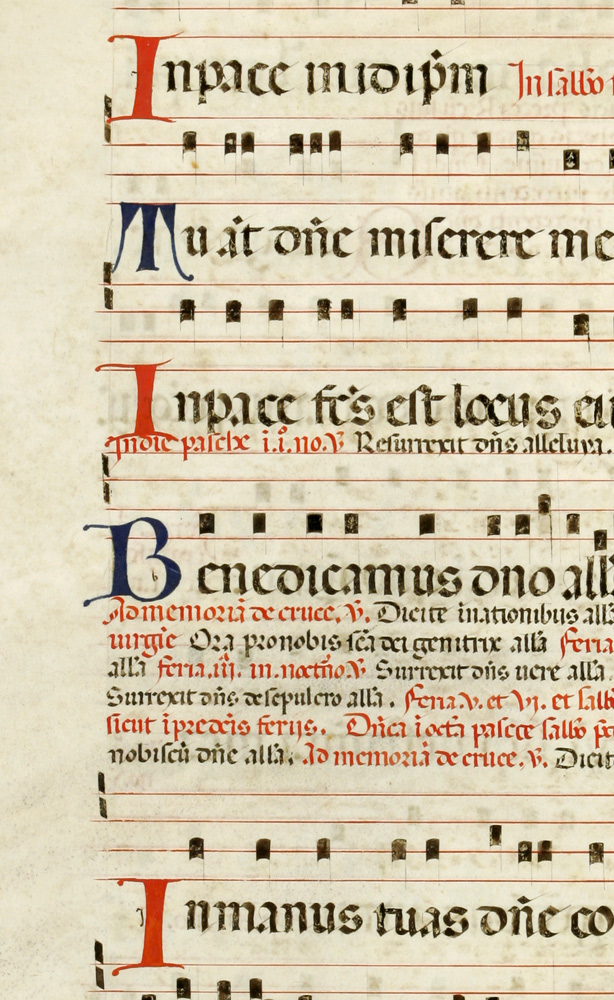 Inpace inidipm In sabbo
Tu at dne miserere me
Inpace fcs est locus eiu
In die pasche i.i.no.V Resurrexit dns alleluya.
Benedicamus dno alla
Ad memoria de cruce. V. Dicite inationibus alla
virgie Ora pronobis sca dei genitrix alla feria
alla feria.iii. in.noctno.V Surrexit dns vere alla.
Surrexit dns de sepulcro alla. feria.V.et VI. et sabbo
sicut i predcis ferijs. Dnica i octa pasce sabbo
nobiscu dne alla. Ad memoria de cruce. V. Dicit
In manus tuas dne co